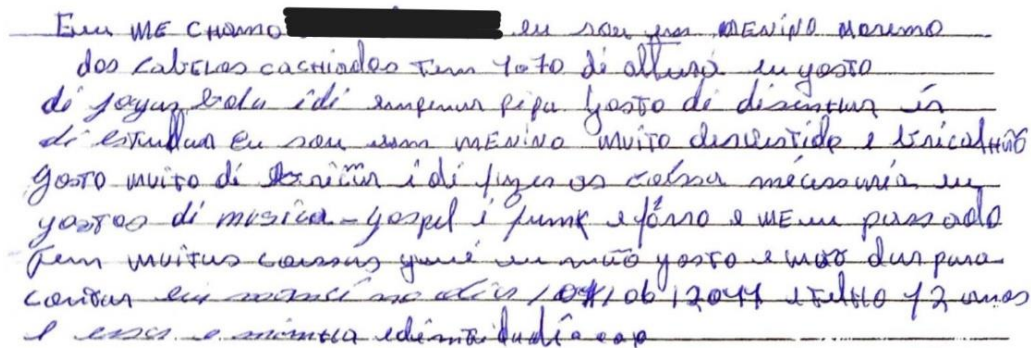 Eu ME CHAMO eu sou um MENINO Moreno
dos cabelos cachiados Tem 1070 di altura eu gosto
di jogar bola i di empinar pipa gosto di disenhar i
di estudar Eu sou um MENINO muito divertido e brincalhão
gosto muito di brincar i di fazer as coisa nescessaria eu
gostos di musica - gospel i funk e forro e MEu passado
Tem muitas coisas que eu não gosto e não dar para
contar eu nasci no dia 2011 e Tenho 12 anos
e essa e minha